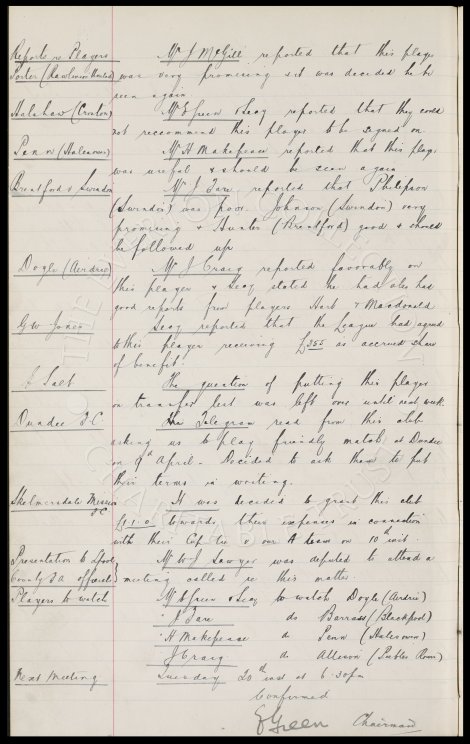 Reports re Players Mr J McGill reported that this player
Porter (Rawlinson United) was very promising & it was decided he be
seen again
Halshaw (Croston) Mr E Green & Secy reported that they could
not reccommend this player to be signed on.
Penn (Halesowen) Mr H Makepeace reported that this player
was useful & should be seen again
Brentford v Swindon Mr J Fare reported that Philipson
(Swindon) was poor. Johnson (Swindon) very
promising & Hunter (Brentford) good & should
be followed up.
Doyle (Airdrie) Mr J Craig reported favorably on
this player & Secy stated he had also had
good reports from players Hart & Macdonald
G W Jones Secy reported that the League had agreed
to this player receiving £355 as accrued share
of benefit.
C Salt The question of putting this player
on transfer list was left over until next week.
Dundee F.C. The Telegram read from this club
asking us to play friendly match at Dundee
on April. Decided to ask them to put
their terms in writing.
Skelmersdale Mission It was decided to grant this club
F.C.
towards their expenses in connection
with their Cup tie v our A team on 10th inst.
Presentation to L'pool Mr W J Sawyer was deputed to attend a
County F.A. officials meeting called re this matter.
Players to watch Mr E Green & Secy to watch Doyle (Airdrie)
" J Fare do Barrass (Blackpool)
" H Makepeace do Penn (Halesowen)
J Craig do Allison
Next Meeting Tuesday 20th inst at 6.30pm
Confirmed
E Green Chairman